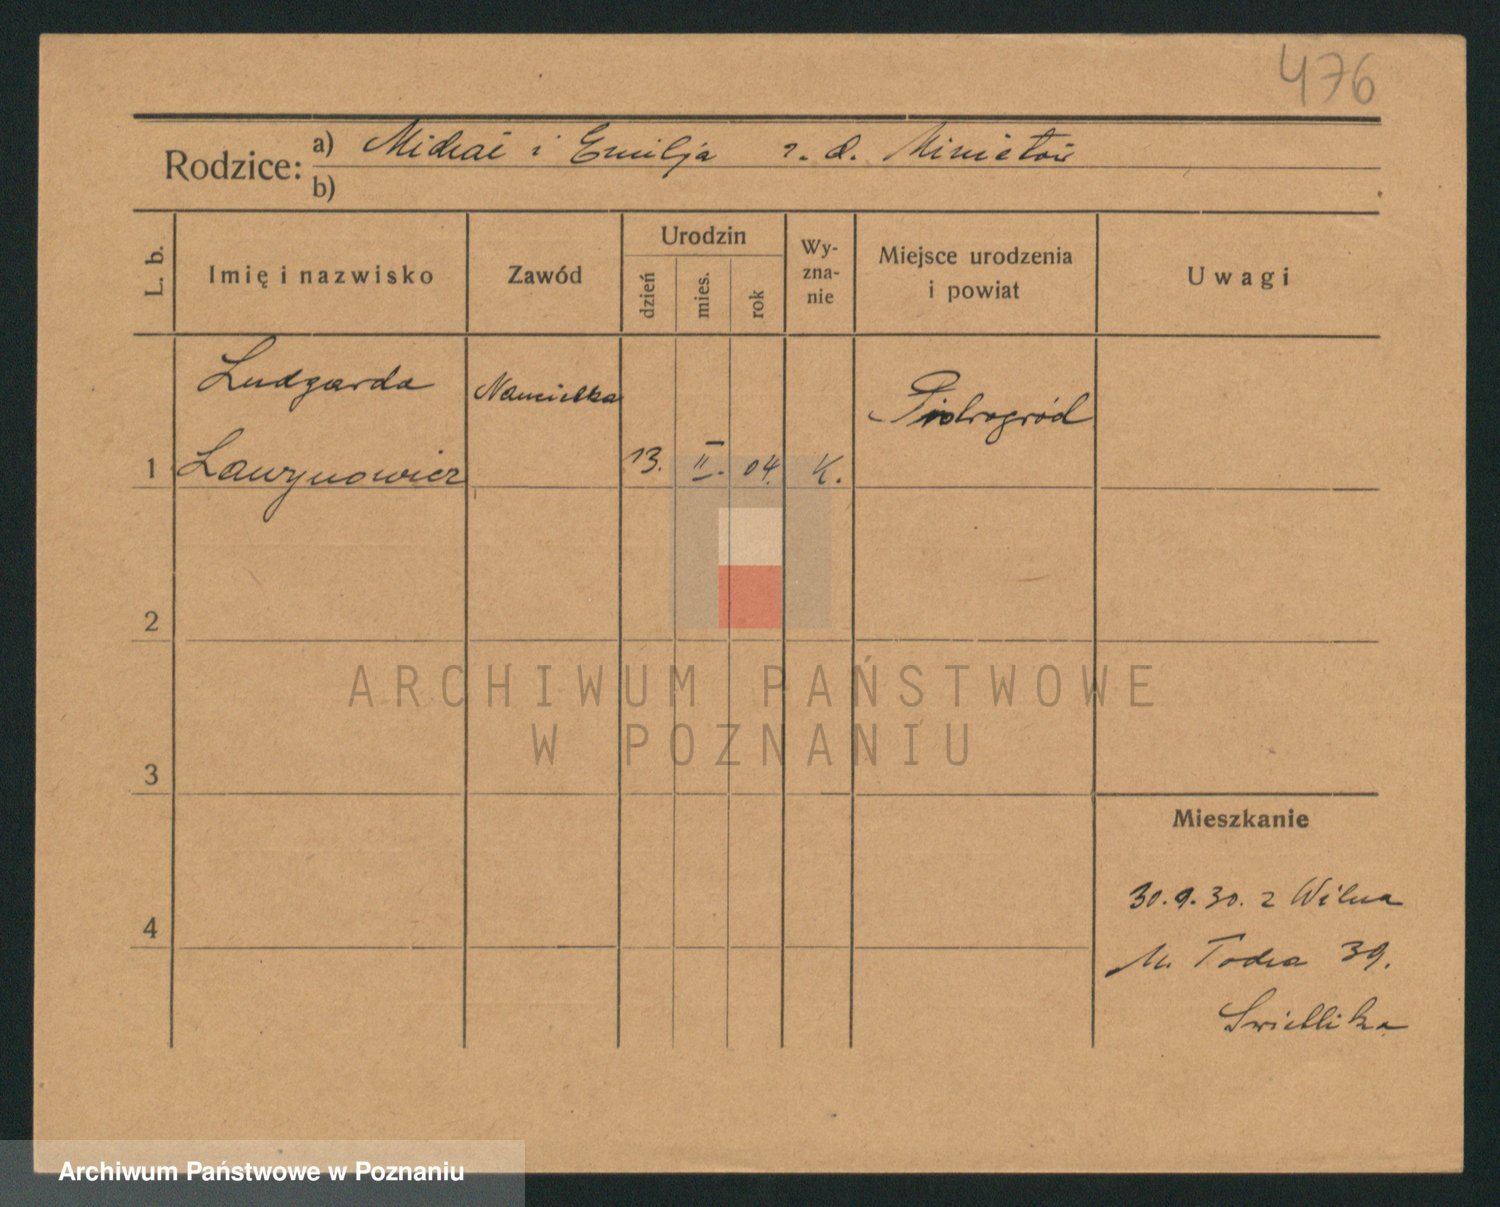 476
Rodzice: a) Michał i Emilja z. d.
b)
L. b.
Imię i nazwisko
Zawód
Urodzin
dzień
mies.
rok
Wy-
zna-
nie
Miejsce urodzenia
i powiat
Uwagi
Ludgarda
Ławrynowicz
1
13. II. 04. K.
Piotrogród
2
3
4
Mieszkanie
30.9.30. z Wilna
M. Focha 39.
ARCHIWUM PAŃSTWOWE
W POZNANIU
Archiwum Państwowe w Poznaniu